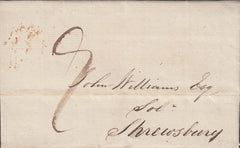 John Williams Esq
Solr
Shrewsbury